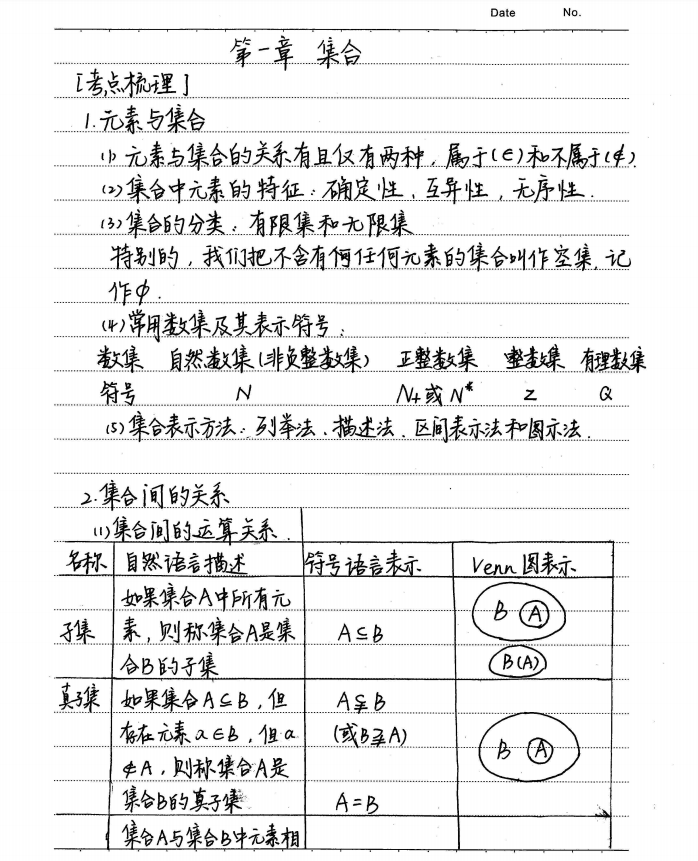 Date No.
第一章 集合
[考点梳理]
1.元素与集合
(1) 元素与集合的关系有且仅有两种，属于(∈)和不属于(∉)
(2)集合中元素的特征：确定性，互异性，无序性.
(3)集合的分类：有限集和无限集
特别的，我们把不含有何任何元素的集合叫作空集,记
作∅.
(4)常用数集及其表示符号：
数集 自然数集(非负整数集) 正整数集 整数集 有理数集
符号 N N+或N* Z Q
(5)集合表示方法：列举法、描述法、区间表示法和图示法.
2.集合间的关系
(1)集合间的运算关系.
名称 自然语言描述 符号语言表示 Venn图表示
如果集合A中所有元 B A
子集 素，则称集合A是集 A⊆B
合B的子集 B(A)
真子集 如果集合A⊆B，但 A⫋B
存在元素a∈B，但a (或B⫌A) B A
∉A，则称集合A是
集合B的真子集 A=B
集合A与集合B中元素相